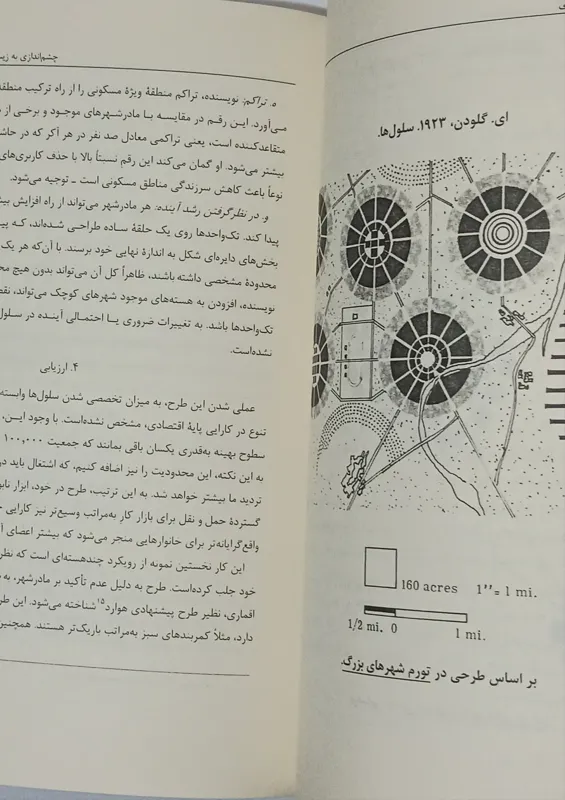 ای. گلودن، ۱۹۲۳. سلول‌ها.
160 acres 1″= 1 mi.
1/2 mi. 0 1 mi.
بر اساس طرحی در تورم شهرهای بزرگ.
چشم‌اندازی به
ه. تراکم: نویسنده، تراکم منطقهٔ ویژهٔ مسکونی را از راه ترکیب
می‌آورد. این رقم در مقایسه با مادرشهرهای موجود و برخی از
متقاعدکننده است، یعنی تراکمی معادل صد نفر در هر آکر که در
بیشتر می‌شود. او گمان می‌کند این رقم نسبتاً بالا با حذف کاربری‌های
نوعاً باعث کاهش سرزندگی مناطق مسکونی است ـ توجیه می‌شود.
و. در نظر گرفتن رشد آینده: هر مادرشهر می‌تواند از راه افزایش
پیدا کند. تک‌واحدها روی یک حلقهٔ ساده طراحی شده‌اند، که
بخش‌های دایره‌ای شکل به اندازهٔ نهایی خود برسند. با آن‌که هر یک
محدودهٔ مشخصی داشته باشند، ظاهراً کل آن می‌تواند بدون هیچ
نویسنده، افزودن به هسته‌های موجود شهرهای کوچک می‌تواند،
تک‌واحدها باشد. به تغییرات ضروری یا احتمالی آینده در
نشده‌است.
۴. ارزیابی
عملی شدن این طرح، به میزان تخصصی شدن سلول‌ها وابسته
تنوع در کارایی پایهٔ اقتصادی، مشخص نشده‌است. با وجود این،
سطوح بهینه به‌قدری یکسان باقی بمانند که جمعیت ۱۰۰,۰۰۰
به این نکته، این محدودیت را نیز اضافه کنیم، که اشتغال باید
تردید ما بیشتر خواهد شد. به این ترتیب، طرح در خود، ابزار
گستردهٔ حمل و نقل برای بازار کار به‌مراتب وسیع‌تر نیز کارایی
واقع‌گرایانه‌تر برای خانوارهایی منجر می‌شود که بیشتر اعضای
این کار نخستین نمونه از رویکرد چندهسته‌ای است که
خود جلب کرده‌است. طرح به دلیل عدم تأکید بر مادرشهر، به
اقماری، نظیر طرح پیشنهادی هوارد۱۵ شناخته می‌شود. این
دارد، مثلاً کمربندهای سبز به‌مراتب باریک‌تر هستند. همچنین